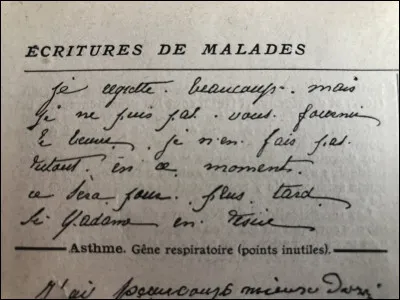 ÉCRITURES DE MALADES
je regrette. beaucoup. mais
je ne puis pas. vous. fournir
le beurre. je n'en. fais pas.
autant. en ce moment.
ce sera pour. plus. tard
si Madame en désire
Asthme. Gêne respiratoire (points inutiles).
J'ai beaucoup mieux